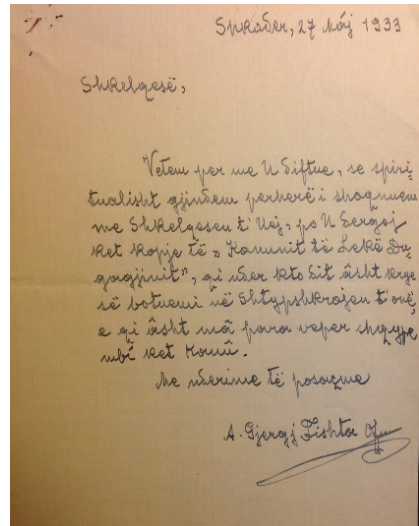 Shkoder, 27 Máj 1933
Shkelqesë,
Vetem per me U diftue, se spiri-
tualisht gjindem perherë i shoqnuem
me Shkelqesen t'Uej, po U dergoj
ket kopje të „Kanunit të Lekë Du-
gagjinit", qi nder kto dit âsht krye
së botuemi në Shtypshkrojen t'onë,
e qi âsht mâ para veper shqype
mbi ket Kanû.
Me nderime të posaçme
A. Gjergj Fishta Ofm